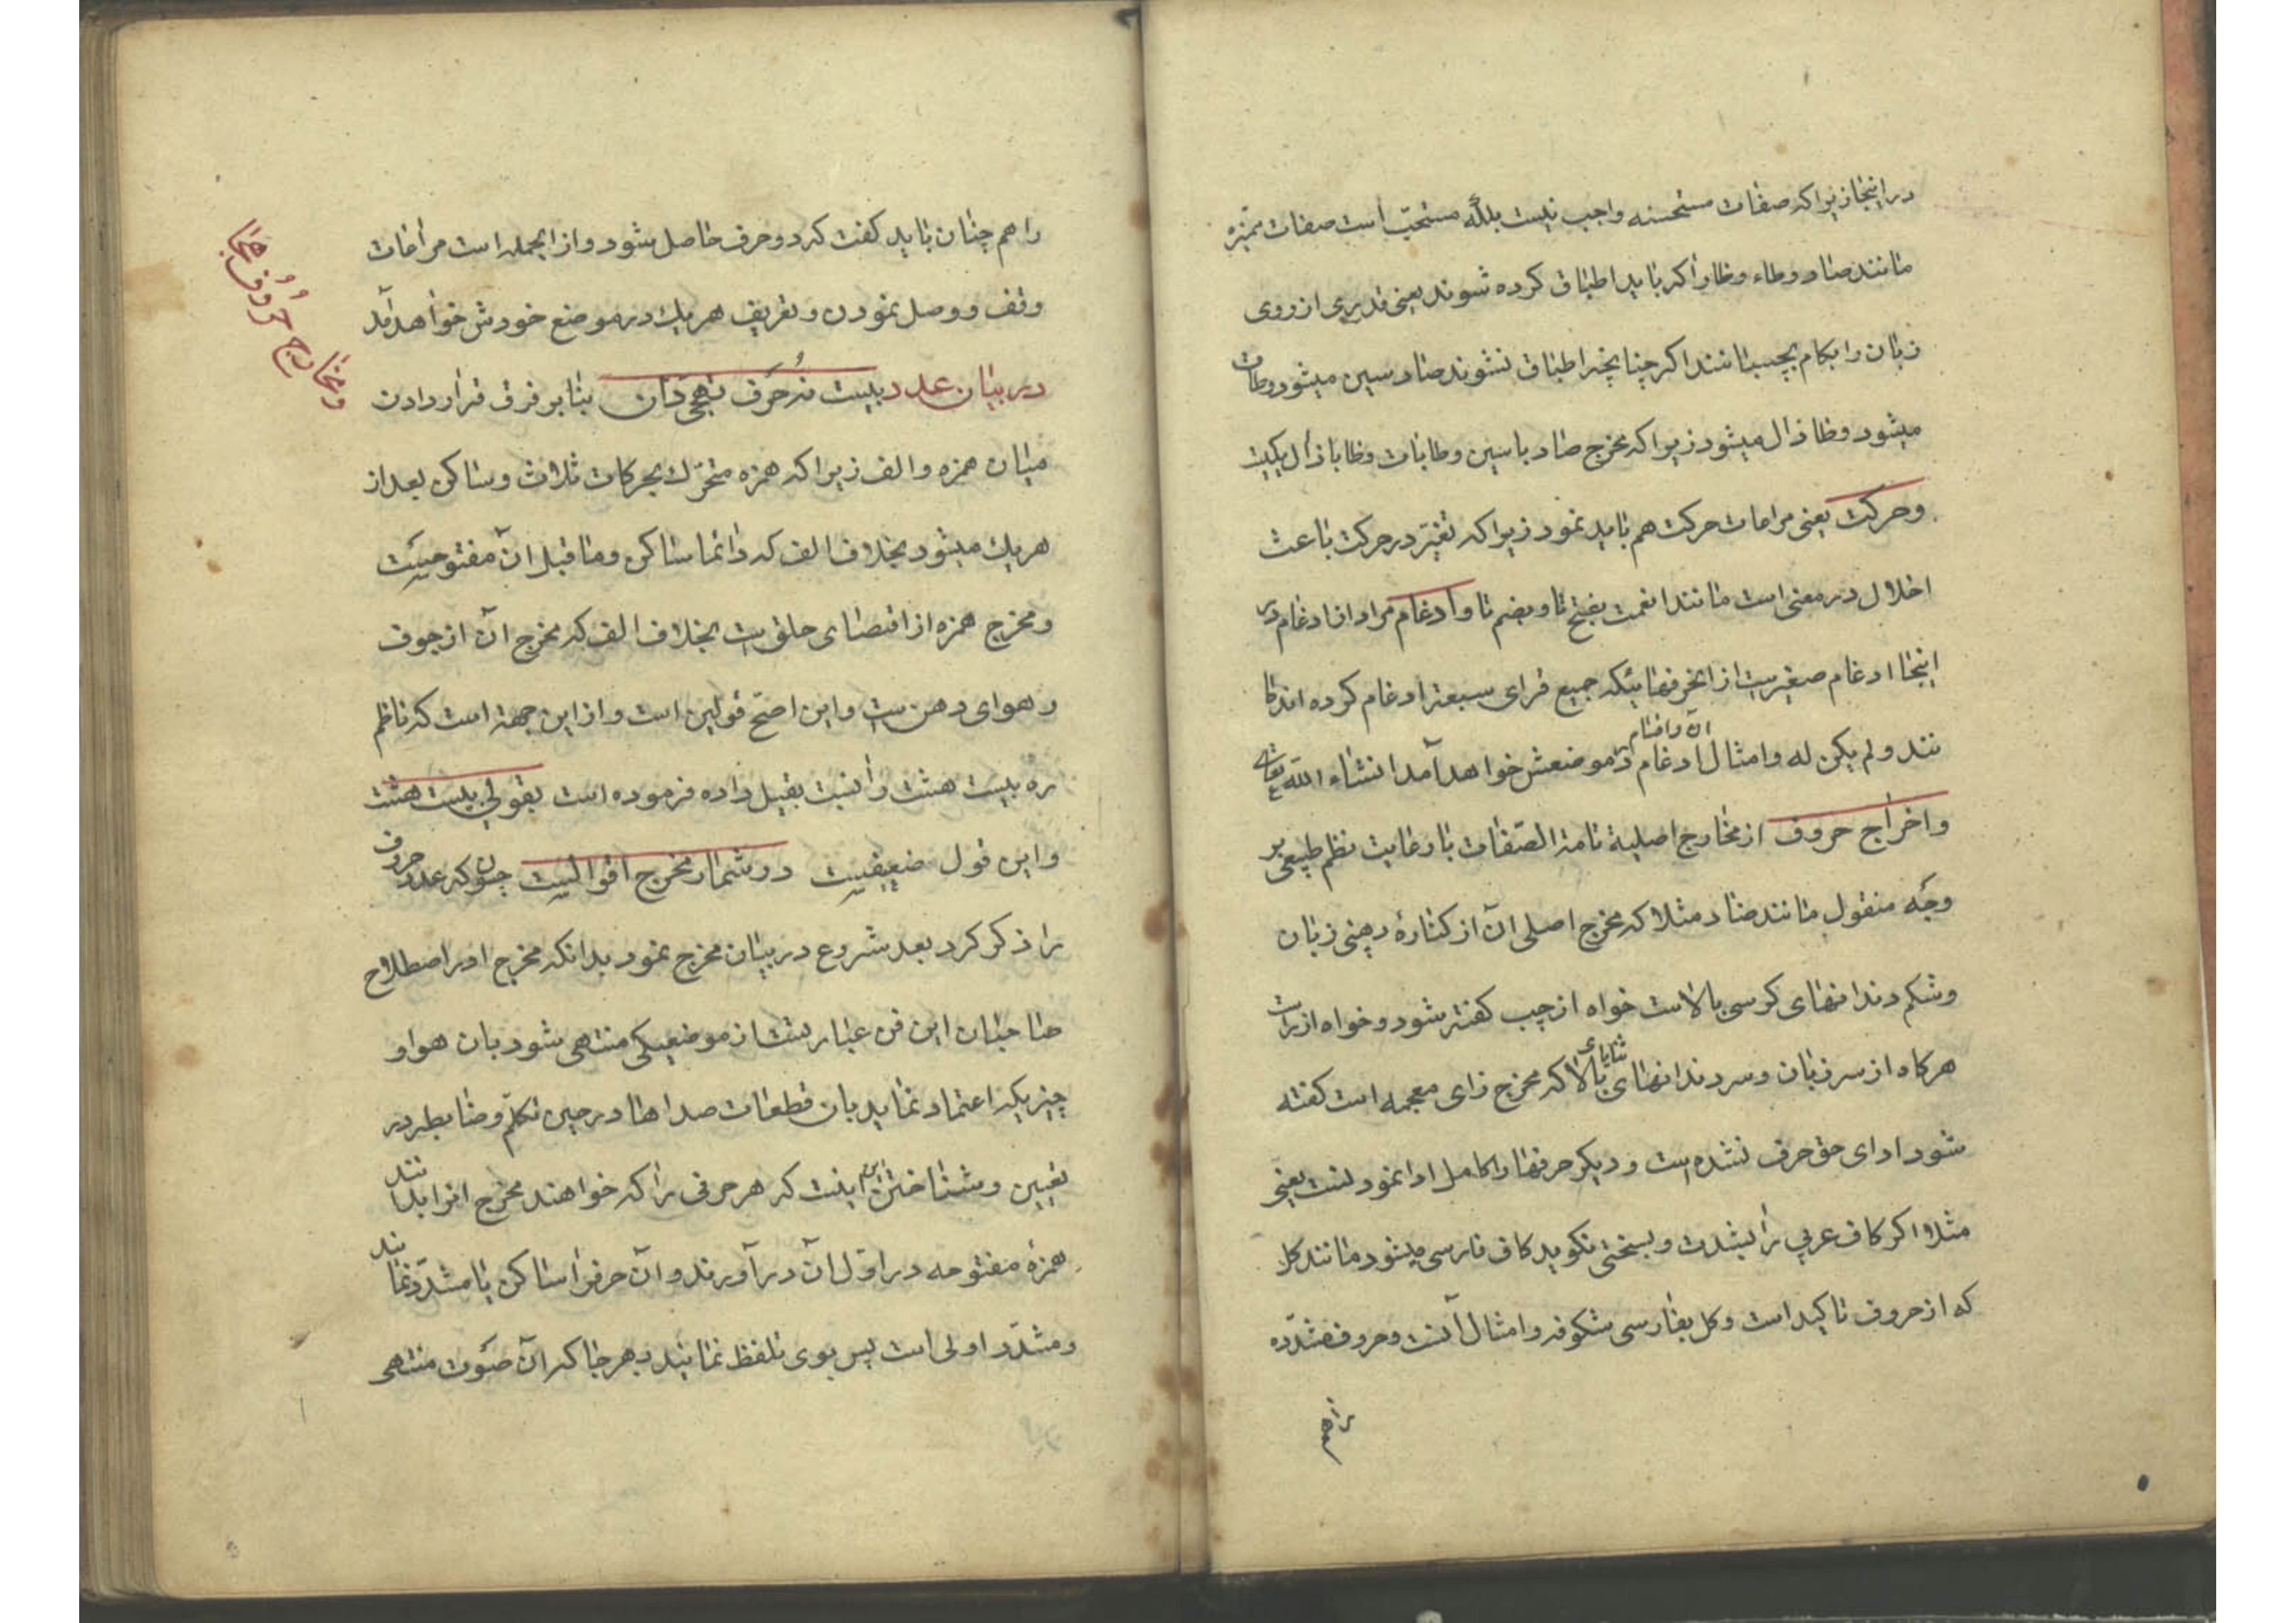 در اینجا زیرا که صفات مستحسنه واجب نیست بلکه مستحبّ است صفات ممیّزه
مانند صاد وطاء وظا را که باید اطباق کرده شوند یعنی قدیری از روی
زبان را بکام بچسبانند اکر چنانچه اطباق نشوند صاد سین میشود وطا تا
میشود وظا ذال میشود زیرا که مخرج صاد با سین وطا با تا وظا با ذال یکیست
وحرکت یعنی مراعات حرکت هم باید نمود زیرا که تغیّر در حرکت باعث
اخلال در معنی است مانند انعمت بفتح تا وبضم تا وادغام مراد از ادغام در
اینجا ادغام صغیرست از انحرفهائیکه جمیع قرای سبعه ادغام کرده اند مانند
نند ولم یکن له وامثال ادغام ان واقسام در موضعش خواهد آمد انشاء الله تعالی
واخراج حروف از مخارج اصلیة تامة الصّفات با رعایت نظم طبیعی بر
وجه منقول مانند ضاد مثلا که مخرج اصلی ان از کنارهٔ دهنی زبان
وشکم دندانهای کرسی بالاست خواه از چپ کفته شود وخواه از راست
هرکاه از سر زبان وسر دندانهای ثنایای بالا که مخرج زای معجمه است کفته
شود ادای حق حرف نشده است ودیکر حرفها را کامل ادا نمودنست یعنی
مثلا اکر کاف عربی را بشدت وبسختی نکوید کاف فارسی میشود مانند کل
که از حروف تاکید است وکل بفارسی شکوفه وامثال آنست وحروف مشدّده
را هم
را هم چنان باید کفت که دو حرف حاصل بشود واز انجمله است مراعات
وقف ووصل نمودن وتعریف هر یك در موضع خودش خواهد آمد
در بیان عدد بیست نه حرف تهجی دان بنا بر فرق قرار دادن
میان همزه والف زیرا که همزه متحرّك بحرکات ثلاث وساکن بعد از
هر یك میشود بخلاف الف که دائما ساکن وما قبل ان مفتوحست
ومخرج همزه از اقصای حلق ست بخلاف الف که مخرج آن از جوف
وهوای دهن ست واین اصحّ قولین است واز این جهة است که ناظم
ره بیست هشت را نسبت بقیل داده فرموده است بقولی بیست هشت
واین قول ضعیفست در شمار مخرج اقوالست چون که عدد حروف
را ذکر کرد بعد شروع در بیان مخرج نمود بدانکه مخرج در اصطلاح
صاحبان این فن عبارتست از موضعیکی منتهی شود بان هوا و
چیزیکه اعتماد نماید بان قطعات صداها در حین تکلّم وضابطه در
تعیین وشناختن این اینست که هر حرفی را که خواهند مخرج انرا بدانند
همزهٔ مفتوحه در اوّل ان در آورند وآن حرفرا ساکن یا مشدّد نمایند
ومشدّد اولی است پس بوی تلفظ نمایند بهر جا که ان صوت منتهی
ومخارج حروف هجا